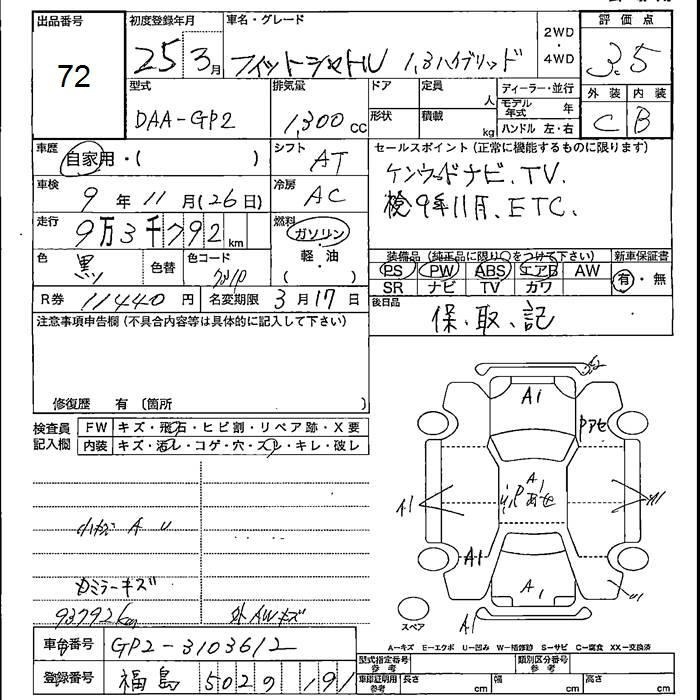 出品番号 初度登録年月 車名・グレード 2WD・4WD 評価点
72 25 3月 フィットシャトル 1.3ハイブリッド 3.5
型式 排気量 ドア 定員 人 ディーラー・並行 外装 内装
DAA-GP2 1,300cc 形状 積載 kg モデル年式 年 C B
ハンドル 左・右
車歴 自家用・( ) シフト AT セールスポイント(正常に機能するものに限ります)
車検 9年11月(26日) 冷房 AC ケンウッドナビ.TV.
走行 9万3千792km 燃料 ガソリン・軽油 ( ) 検9年11月.ETC.
色 黒 色替 色コード 装備品(純正品に限り○をつけて下さい) 新車保証書
PS PW ABS エアB AW 有・無
SR ナビ TV カワ
R券 11440円 名変期限 3月17日 後日品
保、取、記
注意事項申告欄(不具合内容等は具体的に記入して下さい)
修復歴 有 〔箇所 〕
検査員記入欄 FW キズ・飛石・ヒビ割・リペア跡・X要
内装 キズ・汚レ・コゲ・穴・スレ・キレ・破レ
A1
Pアセ
A1
A1
A1
A1
A1
小キズ A U
カミラーキズ
93792km 外AWキズ
スペア
A－キズ E－エクボ U－凹み W－補修跡 S－サビ C－腐食 XX－交換済
車台番号 GP2-3103612
登録番号 福島 502 の 191
型式指定番号 参考 類別区分番号 参考
車庫証明用 参考 長さ cm 幅 cm 高さ cm